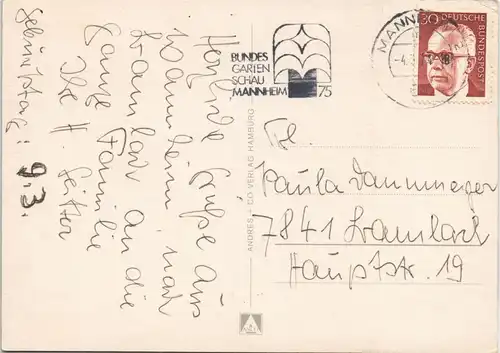 Herzliche Grüße aus
Mannheim, nach
an die
ganze Familie
Ihre H.
Geburtstag: 9.3.
BUNDES
GARTEN
SCHAU
MANNHEIM 75
MANN
30 DEUTSCHE
BUNDESPOST
ANDRES + CO VERLAG HAMBURG
Frl.
Paula
7841
Hauptstr. 19